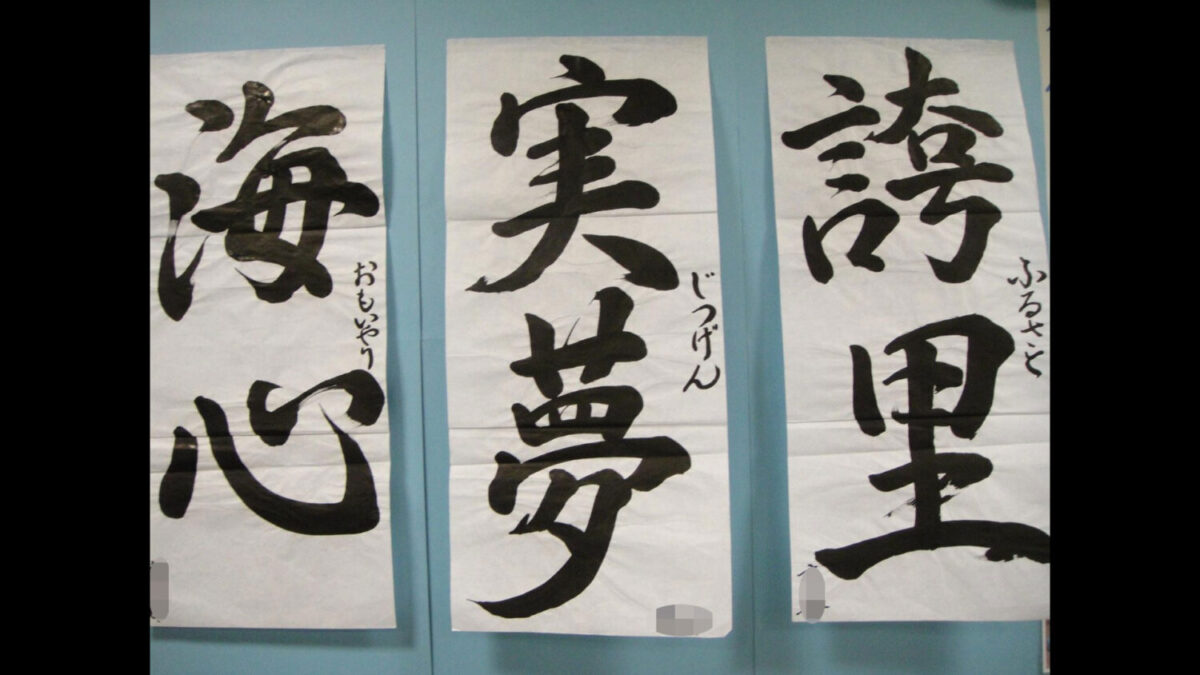 誇里
ふるさと
実夢
じつげん
海心
おもいやり